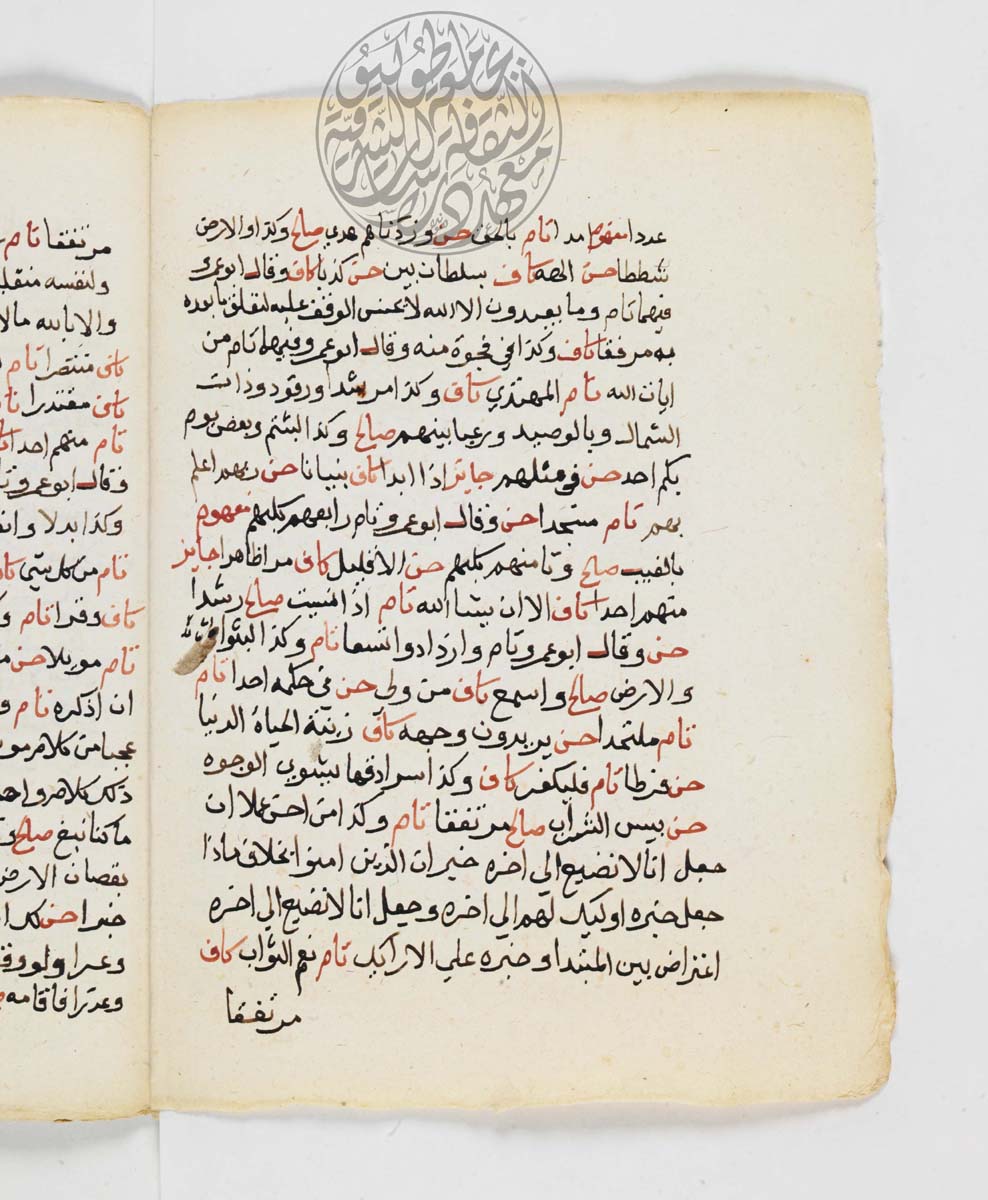 جامعة طوكيو
معهد الثقافة والدراسات الشرقية
عددا مفهوم امدا تام بالحق حسن وزدناهم هدي صالح وكذا والارض
شططا حسن الهه كاف بسلطان بين حسن كذبا كاف وقال ابو عمرو
فيهما تام وما يعبدون الا الله لا يحسن الوقف عليه لتعلق ما بعده
به مرفقا كاف وكذا في فجوة منه وقال ابو عمرو فيهما تام من
ايات الله تام المهتدي كاف وكذا مرشدا ورقود وذات
الشمال وبالوصيد ورعبا بينهم صالح وكذا لبثتم وبعض يوم
بكم احد حسن في مثلهم جايز اذا ابدا كاف بنيانا حسن ربهم اعلم
بهم تام مسجدا حسن وقال ابو عمرو تام رابعهم كلبهم مفهوم
بالغيب صالح وثامنهم كلبهم حسن الا قليل كاف مرا ظاهرا جايز
منهم احدا كاف الا ان يشا الله تام اذا نسيت صالح رشدا
حسن وقال ابو عمرو تام وازدادوا تسعا تام وكذا لبثوا
والارض صالح واسمع كاف من ولي حسن في حكمه احدا تام
تام ملتحدا حسن يريدون وجهه كاف زينة الحياة الدنيا
حسن فرطا تام فليكفر كاف وكذا سرادقها يشوي الوجوه
حسن بيس الشراب صالح مرتفقا تام وكذا من احسن عملا ان
جعل انا لا نضيع الي اخره خبر ان الذين امنوا بخلاف ما اذا
جعل خبره اوليك لهم الي اخره وجعل انا لا نضيع الي اخره
اعتراض بين المبتدا وخبره علي الارايك تام نعم الثواب كاف
مرتفقا
مرتفقا تام
ولنفسه
والا بالله
كاف منتصرا تام
كاف مقتدرا
تام منهم احدا
وقال ابو عمرو
وكذا بدلا
تام من كل شي
كاف وقرا تام
تام مويلا حسن
ان اذكره تام
عجبا من كلام
ذلك كلام
ما كنا نبغ صالح
بقصان الارض
خبرا حسن
ولو
فاقامه